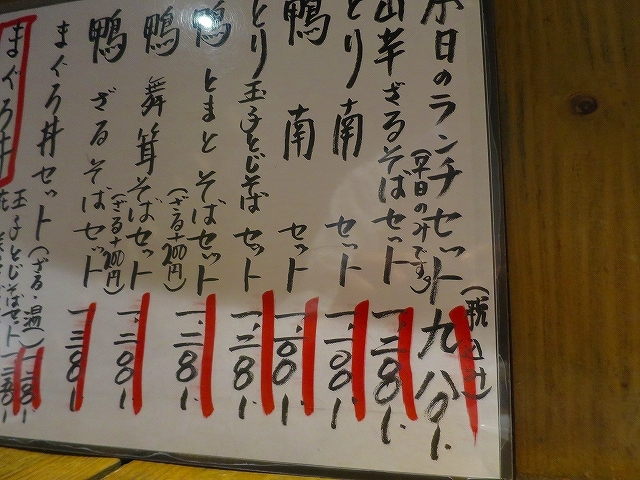 本日のランチセット 九八〇
(平日のみです。)
(税込み)
ざるそばセット 一、二八〇
とり南 セット 一、一〇〇
鴨 南 セット 一、一〇〇
とり玉子とじそば セット 一、二八〇
鴨 とまと そばセット 一、二八〇
(ざる+200円)
鴨 舞茸そばセット 一、二八〇
(ざる+200円)
鴨 ざるそばセット 一、三八〇
まぐろ丼セット(ざる・温)
玉子とじそばセット
まぐろ丼